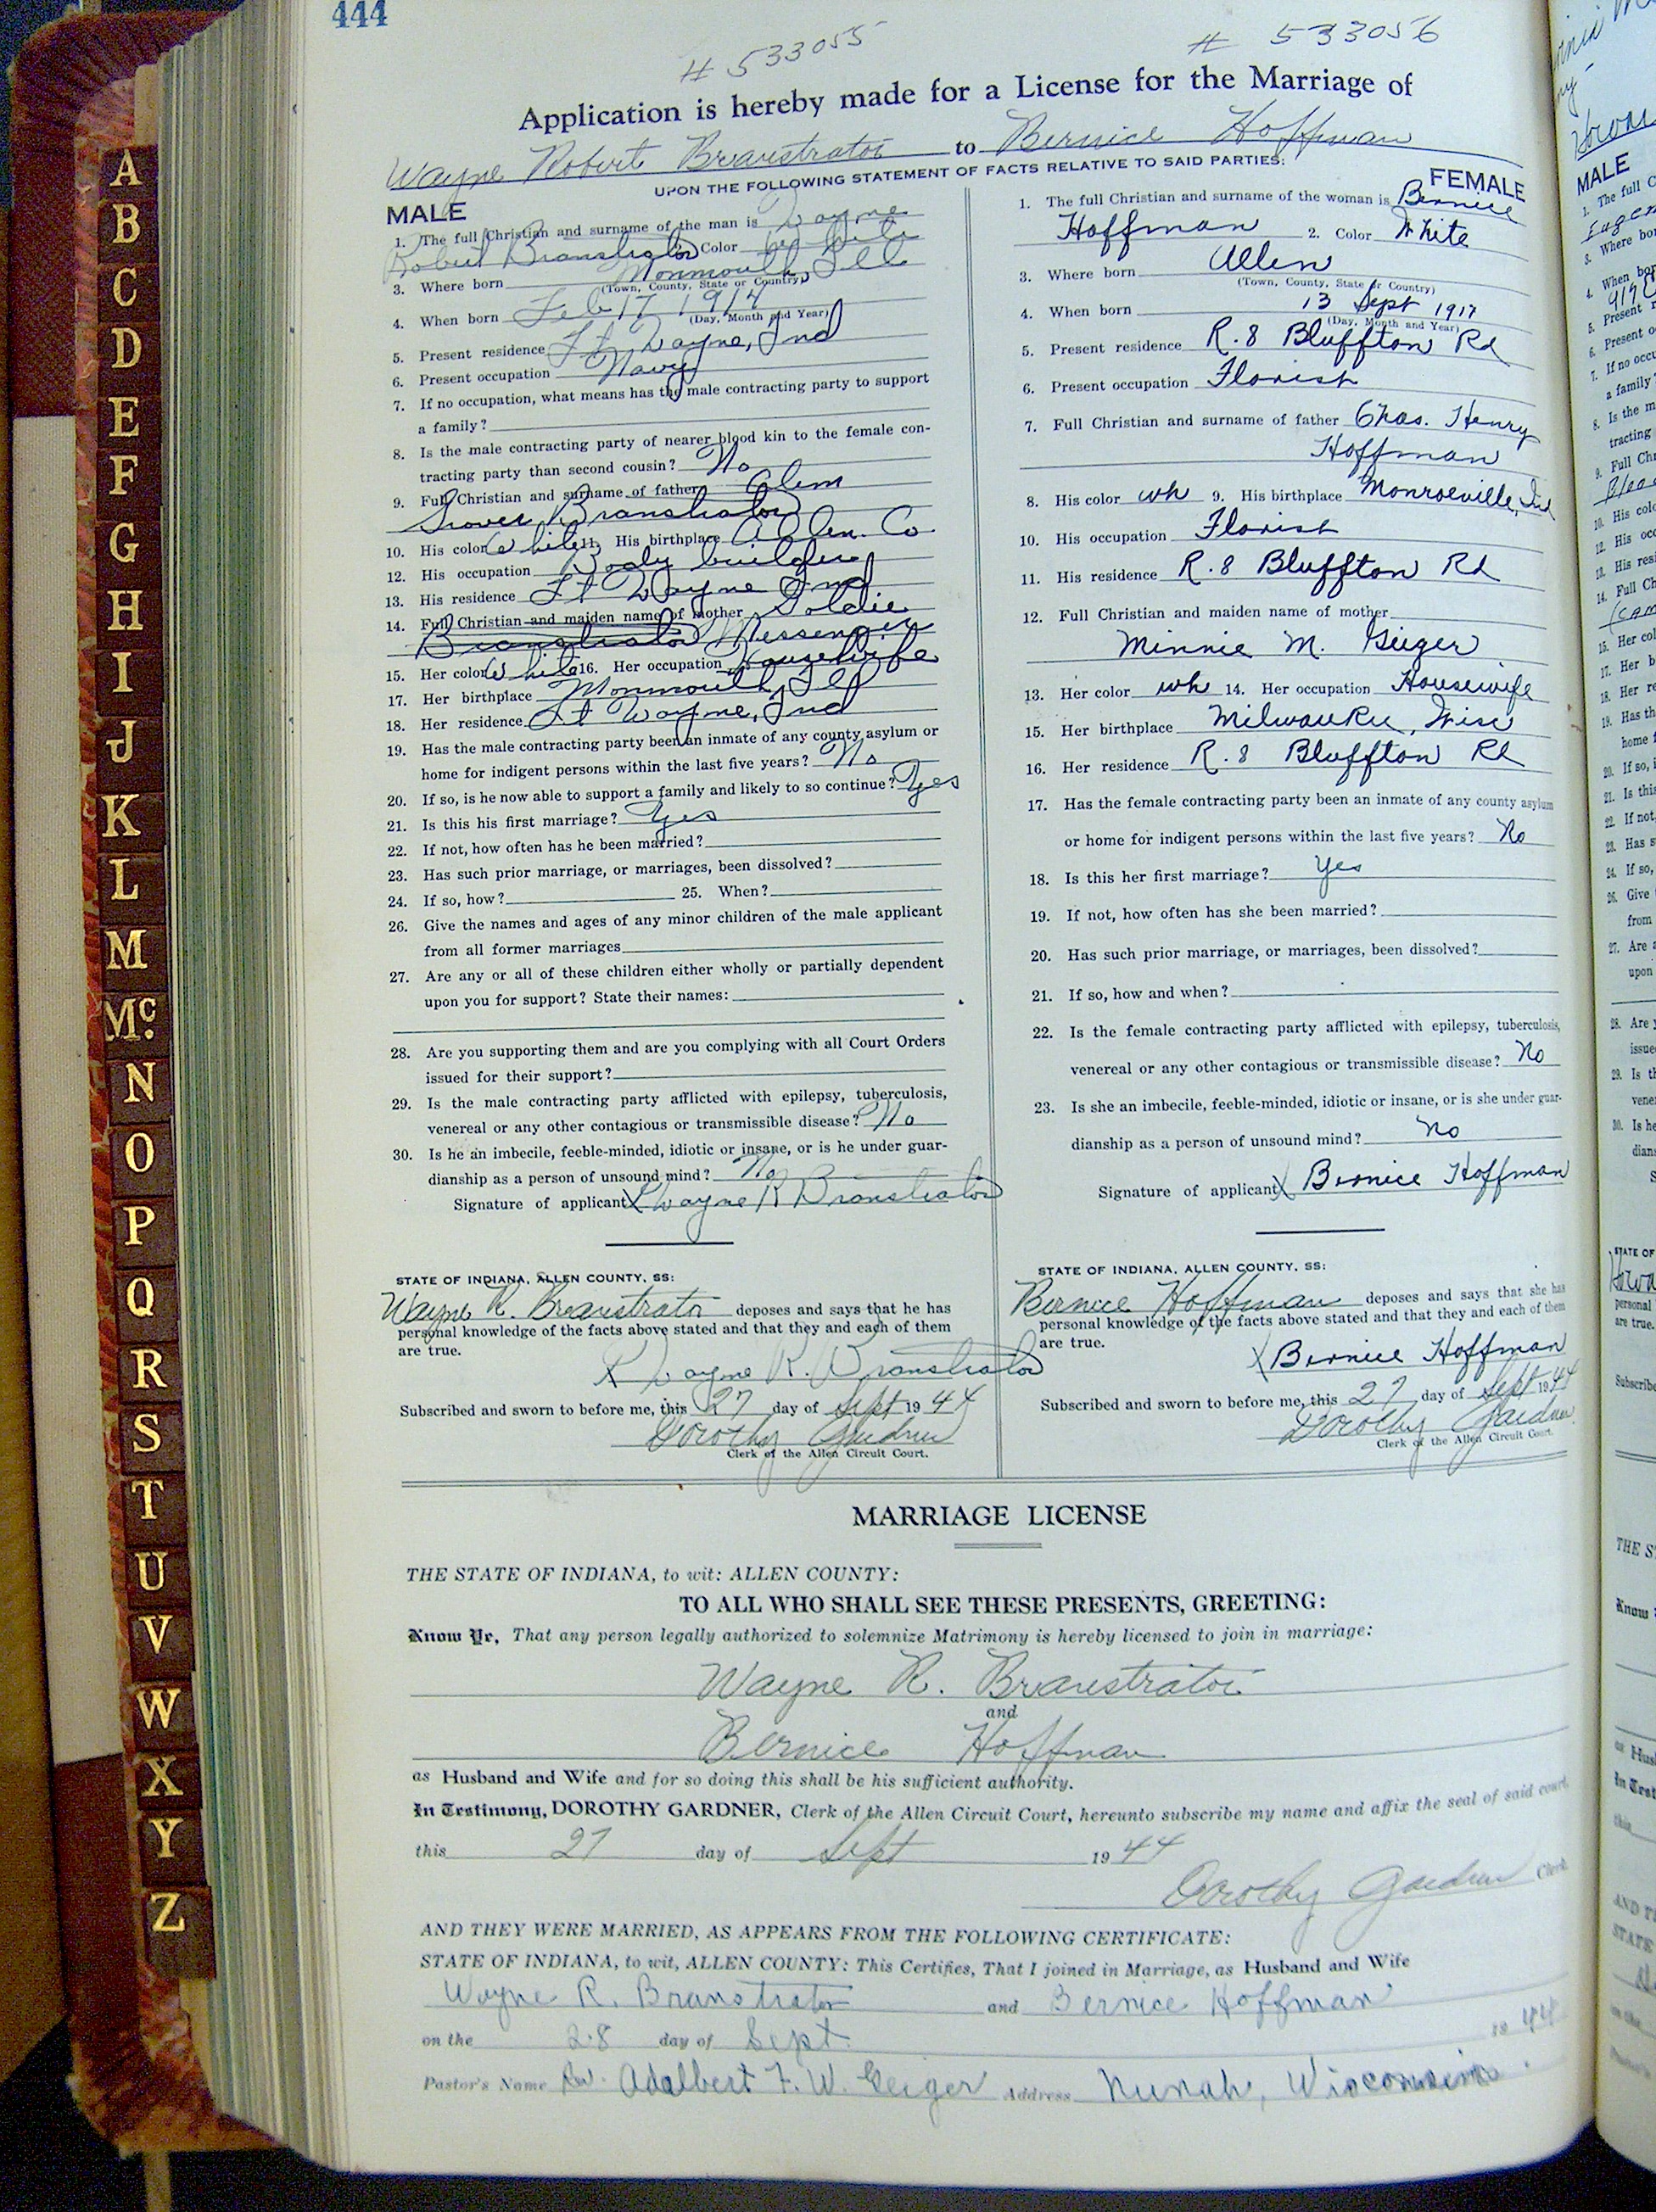 444
# 533055 # 533056
Application is hereby made for a License for the Marriage of
Wayne Robert Branstrator to Bernice Hoffman
UPON THE FOLLOWING STATEMENT OF FACTS RELATIVE TO SAID PARTIES:
MALE
1. The full Christian and surname of the man is Wayne
Robert Branstrator 2. Color White
3. Where born Monmouth, Ill
(Town, County, State or Country)
4. When born Feb 17 1914
(Day, Month and Year)
5. Present residence Ft Wayne, Ind
6. Present occupation Navy
7. If no occupation, what means has the male contracting party to support
a family?
8. Is the male contracting party of nearer blood kin to the female con-
tracting party than second cousin? No
9. Full Christian and surname of father Glem
Grover Branstrator
10. His color White 11. His birthplace Allen. Co
12. His occupation Body builder
13. His residence Ft Wayne Ind
14. Full Christian and maiden name of mother Goldie
Branstrator Messenger
15. Her color White 16. Her occupation Housewife
17. Her birthplace Monmouth, Ill
18. Her residence Ft Wayne, Ind
19. Has the male contracting party been an inmate of any county asylum or
home for indigent persons within the last five years? No
20. If so, is he now able to support a family and likely to so continue? Yes
21. Is this his first marriage? Yes
22. If not, how often has he been married?
23. Has such prior marriage, or marriages, been dissolved?
24. If so, how? 25. When?
26. Give the names and ages of any minor children of the male applicant
from all former marriages
27. Are any or all of these children either wholly or partially dependent
upon you for support? State their names:
28. Are you supporting them and are you complying with all Court Orders
issued for their support?
29. Is the male contracting party afflicted with epilepsy, tuberculosis,
venereal or any other contagious or transmissible disease? No
30. Is he an imbecile, feeble-minded, idiotic or insane, or is he under guar-
dianship as a person of unsound mind? No
Signature of applicant X Wayne R Branstrator
STATE OF INDIANA, ALLEN COUNTY, SS:
Wayne R. Branstrator deposes and says that he has
personal knowledge of the facts above stated and that they and each of them
are true.
X Wayne R. Branstrator
Subscribed and sworn to before me, this 27 day of Sept 1944
Dorothy Gardner
Clerk of the Allen Circuit Court.
FEMALE
1. The full Christian and surname of the woman is Bernice
Hoffman 2. Color White
3. Where born Allen
(Town, County, State or Country)
4. When born 13 Sept 1917
(Day, Month and Year)
5. Present residence R.8 Bluffton Rd
6. Present occupation Florist
7. Full Christian and surname of father Chas. Henry
Hoffman
8. His color wh 9. His birthplace Monroeville, Ind
10. His occupation Florist
11. His residence R.8 Bluffton Rd
12. Full Christian and maiden name of mother
Minnie M. Geiger
13. Her color wh 14. Her occupation Housewife
15. Her birthplace Milwaukee, Wisc
16. Her residence R.8 Bluffton Rd
17. Has the female contracting party been an inmate of any county asylum
or home for indigent persons within the last five years? No
18. Is this her first marriage? Yes
19. If not, how often has she been married?
20. Has such prior marriage, or marriages, been dissolved?
21. If so, how and when?
22. Is the female contracting party afflicted with epilepsy, tuberculosis,
venereal or any other contagious or transmissible disease? No
23. Is she an imbecile, feeble-minded, idiotic or insane, or is she under guar-
dianship as a person of unsound mind? No
Signature of applicant X Bernice Hoffman
STATE OF INDIANA, ALLEN COUNTY, SS:
Bernice Hoffman deposes and says that she has
personal knowledge of the facts above stated and that they and each of them
are true.
X Bernice Hoffman
Subscribed and sworn to before me, this 27 day of Sept 1944
Dorothy Gardner
Clerk of the Allen Circuit Court.
MARRIAGE LICENSE
THE STATE OF INDIANA, to wit: ALLEN COUNTY:
TO ALL WHO SHALL SEE THESE PRESENTS, GREETING:
Know Ye, That any person legally authorized to solemnize Matrimony is hereby licensed to join in marriage:
Wayne R. Branstrator
and
Bernice Hoffman
as Husband and Wife and for so doing this shall be his sufficient authority.
In Testimony, DOROTHY GARDNER, Clerk of the Allen Circuit Court, hereunto subscribe my name and affix the seal of said court
this 27 day of Sept 1944
Dorothy Gardner Clerk
AND THEY WERE MARRIED, AS APPEARS FROM THE FOLLOWING CERTIFICATE:
STATE OF INDIANA, to wit, ALLEN COUNTY: This Certifies, That I joined in Marriage, as Husband and Wife
Wayne R. Branstrator and Bernice Hoffman
on the 28 day of Sept. 1944
Pastor's Name Rev. Adalbert F. W. Geiger Address Nunah, Wisconsin.
A
B
C
D
E
F
G
H
I
J
K
L
M
Mc.
N
O
P
Q
R
S
T
U
V
W
X
Y
Z
MALE